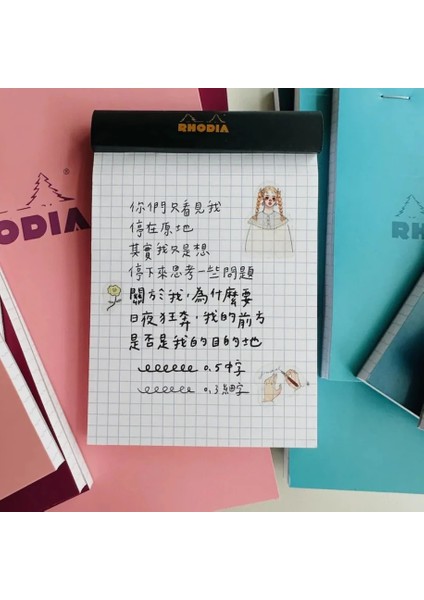 RHODIA
RHODIA
你們只看見我
停在原地
其實我只是想
停下來思考一些問題
關於我，為什麼要
日夜狂奔，我的前方
是否是我的目的地
0.5中字
0.3細字